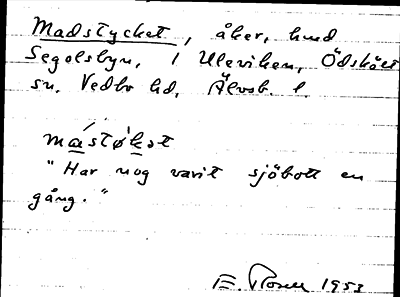 Madstycket, åker, hmd
Segolsbyn, i Uleviken, Ödskölt
sn. Vedbo hd. Älvsb. l.
mástøkət
"Har nog varit sjöbott en
gång."
E. 1953